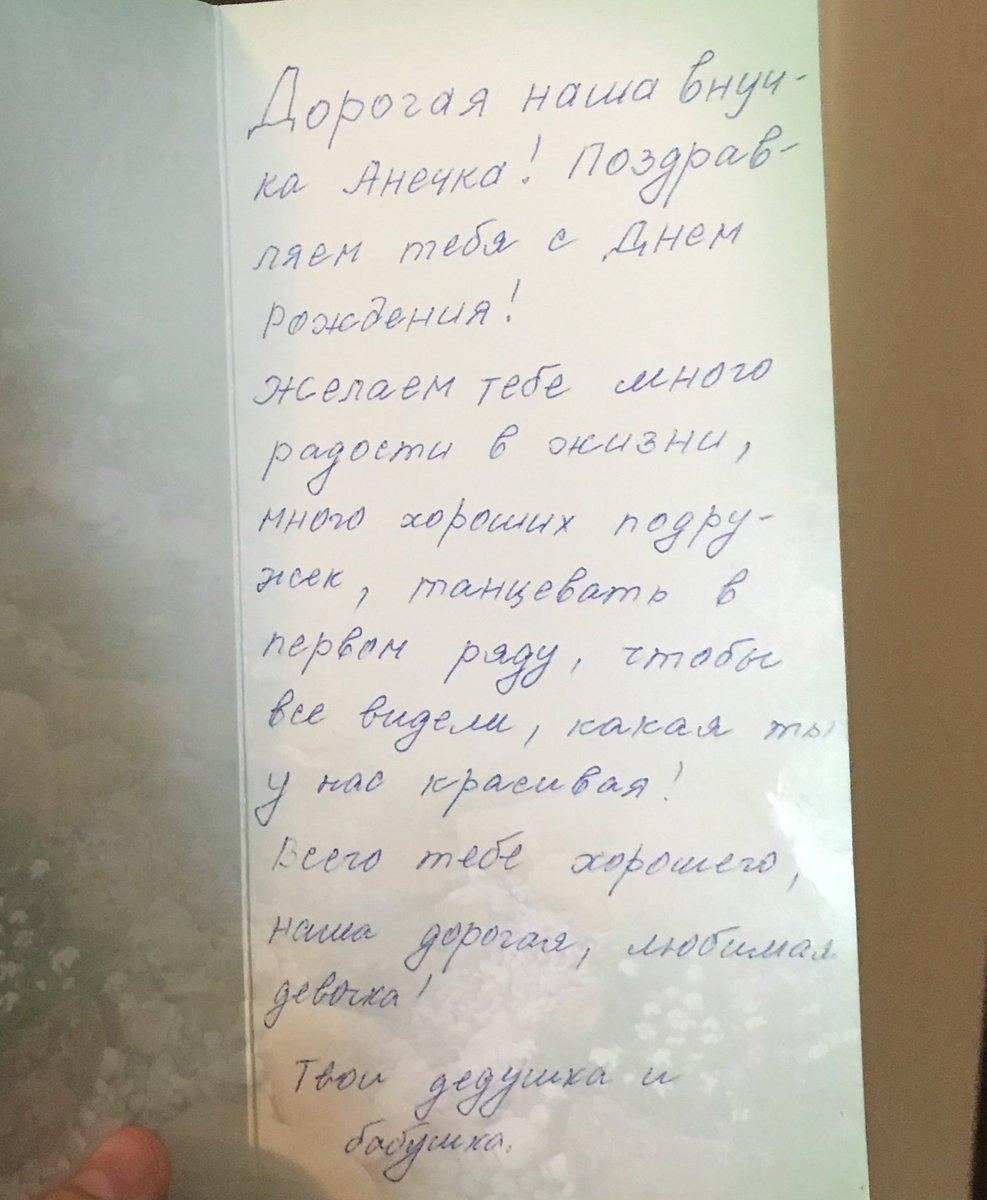 Дорогая наша внуч-
ка Анечка! Поздрав-
ляем тебя с Днем
рождения!
Желаем тебе много
радости в жизни,
много хороших подру-
жек, танцевать в
первом ряду, чтобы
все видели, какая ты
у нас красивая!
Всего тебе хорошего,
наша дорогая, любимая
девочка!
Твои дедушка и
бабушка.